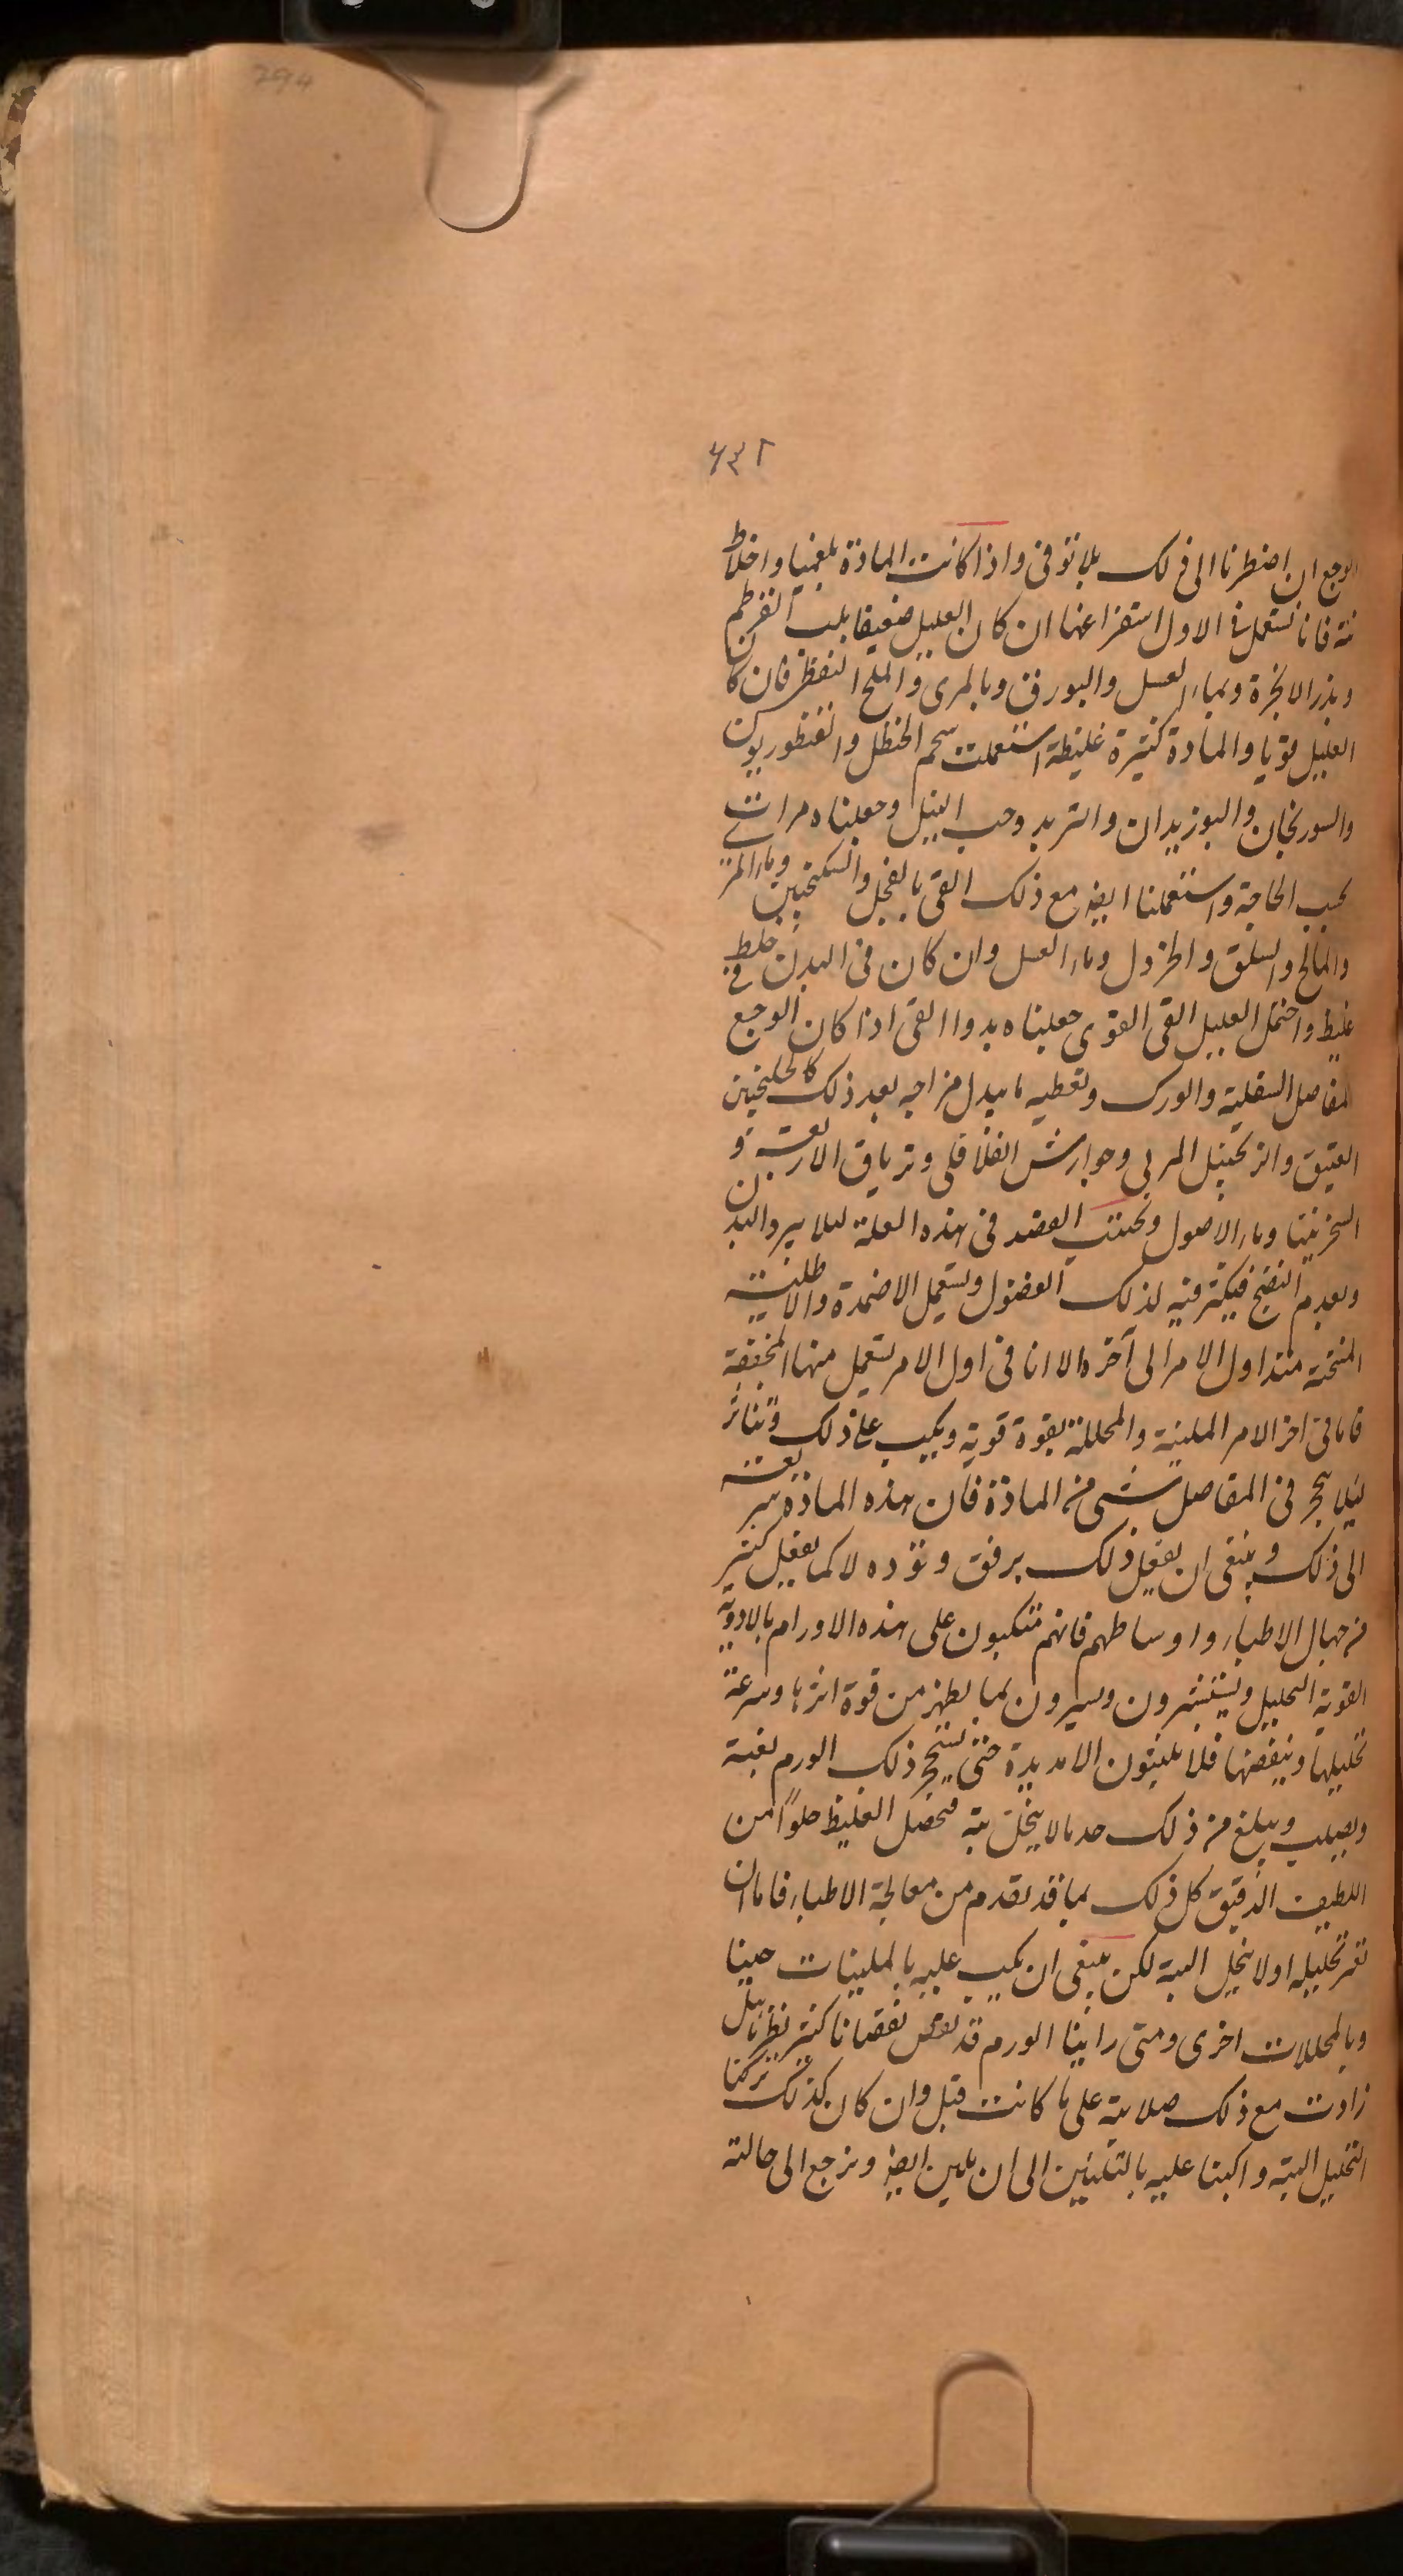 294
٦٤٢
الوجع ان اضطرنا الى ذلك بلا توقى واذا كانت المادة بلغميا واخلاط
نية فانا نستعمل فى الاول استفراغها ان كان العليل ضعيفا بلب القرطم
وبذر الانجرة وبماء العسل والبورق وبالمرى والملح النفطى فان كان
العليل قويا والمادة كثيرة غليظة استعملت شحم الحنظل والقنظوريون
والسورنجان والبوزيدان والتربد وحب النيل وجعلناه مرات
بحسب الحاجة واستعملنا ايضا مع ذلك القى بالفجل والسكنجبين وماء
والمالح والسلق والخردل وماء العسل وان كان فى البدن خلط
غليظ واحتمل العليل القى القوى جعلناه بدواا القى اذا كان الوجع فى
المفاصل السفلية والورك ونعطيه ما يبدل مزاجه بعد ذلك كالجلنجبين
العتيق والزنجبيل المربى وجوارش الفلافلى وترياق الاربعة و
السخرنيتا وماء الاصول ونجتنب الفصد فى هذه العلة لئلا يبرد البدن
ويعدم النضج فيكثر فيه لذلك الفضول ونستعمل الاضمدة والاطلية
المسخنة منذ اول الامر الى آخره الا انا فى اول الامر نستعمل منها المخففة
فاما فى اخر الامر الملينة والمحللة بقوة قوية ويكب على ذلك
لئلا يتحجر فى المفاصل شى من المادة فان هذه المادة سريعة
الى ذلك وينبغى ان يفعل ذلك برفق وتؤده لا كما يفعل كثير
من جهال الاطباء واوساطهم فانهم متكبون على هذه الاورام بالادوية
القوية التحليل ويستبشرون ويسرون لما يظهر من قوة اثرها وسرعة
تحليلها فلا يلبثون الا مديدة حتى يتحجر ذلك الورم بغتة
ويصلب ويبلغ من ذلك حد ما لا ينحل بتة فحصل الغليظ خلوا من
اللطيف الدقيق كل ذلك لما قد تقدم من معالجة الاطباء فاما ان
تحليله اولا ينحل البتة لكن ينبغى ان يكب عليه بالملينات حينا
وبالمحللات اخرى ومتى راينا الورم قد نقص نقصانا كثير نظرنا هل
زادت مع ذلك صلابته على ما كانت قبل وان كان كذلك تركنا
التحليل البتة واكبنا عليه بالتليين الى ان يلين ايضا ونرجع الى حالته